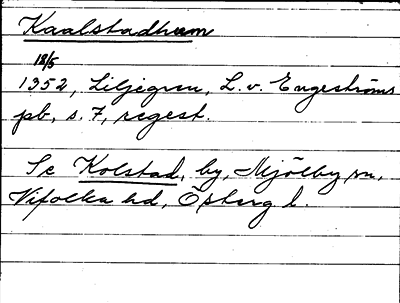 Kaalstadhum
18/5
1352, Liljegren, L. v. Engeströms
pb, s. 7, regest.
Se Kolstad, by, Mjölby sn,
Vifolka hd, Östberg l.